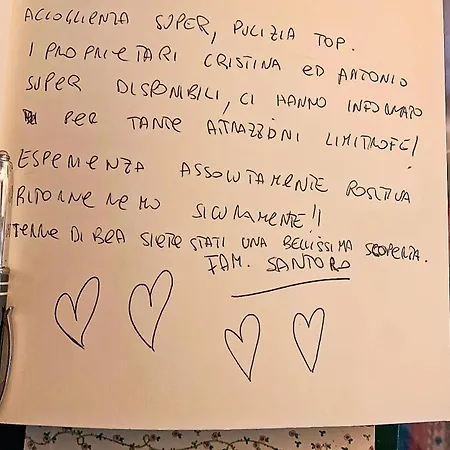 ACCOGLIENZA SUPER, PULIZIA TOP.
I PROPRIETARI CRISTINA ED ANTONIO
SUPER DISPONIBILI, CI HANNO INFORMATO
PER TANTE ATTRAZZIONI LIMITROFE!
ESPERIENZA ASSOLUTAMENTE POSITIVA
RITORNEREMO SICURAMENTE!!
TERRE DI BEA SIETE STATI UNA BELLISSIMA SCOPERTA.
FAM. SANTORO